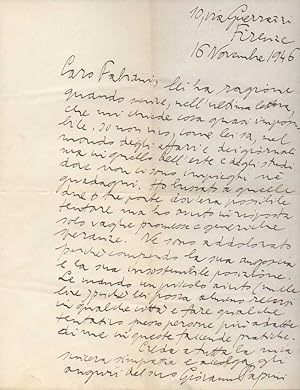 10, via Guerrazzi
Firenze
16 Novembre 1946
Caro Fabiani, lei ha ragione
quando scrive, nell'ultima lettera,
che mi chiede cosa quasi impos-
bile. Io non vivo, come lei sa, nel
mondo degli affari e dei giornali
ma in quello dell'arte e degli studi
dove non vi sono impieghi né
guadagni. Ho bussato a quelle
due o tre porte dov'era possibile
tentare ma ho avuto in risposta
solo vaghe promesse e generiche
speranze. Ne sono addolorato
perché comprendo la sua angoscia
e la sua insostenibile posizione.
Le mando un piccolo aiuto (mille
lire) perché lei possa almeno recarsi
in qualche città e fare qualche
tentativo presso persone più adatte
di me in queste faccende pratiche.
Creda a tutta la mia
sincera simpatia e accolga gli
auguri del suo Giovanni Papini